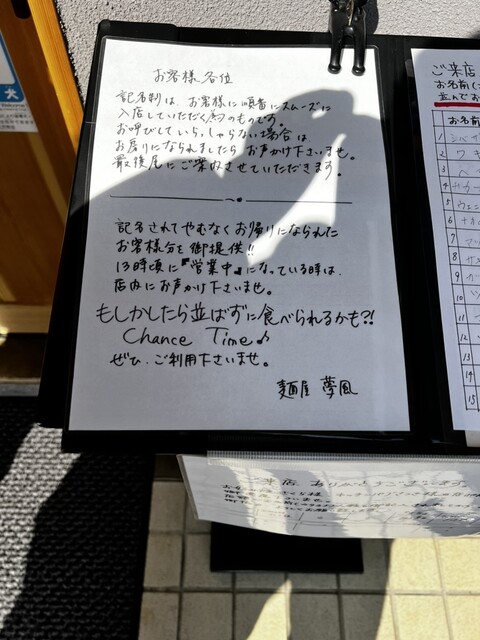 お客様各位
記名制は、お客様に順番にスムーズに
入店していただく為のものです。
お呼びしていらっしゃらない場合は、
お戻りになられましたら お声かけ下さいませ。
最後尾にご案内させていただきます。
記名されてやむなくお帰りになられた
お客様分を御提供!!
13時頃に『営業中』になっている時は、
店内にお声かけ下さいませ。
もしかしたら並ばずに食べられるかも?!
Chance Time♪
ぜひ、ご利用下さいませ。
麺屋 夢風
ご来店
お名前
並んでお
お名前
1
2
3
4
5
6
7
8
9
10
11
12
13
14
15
来店 ありがとうございます